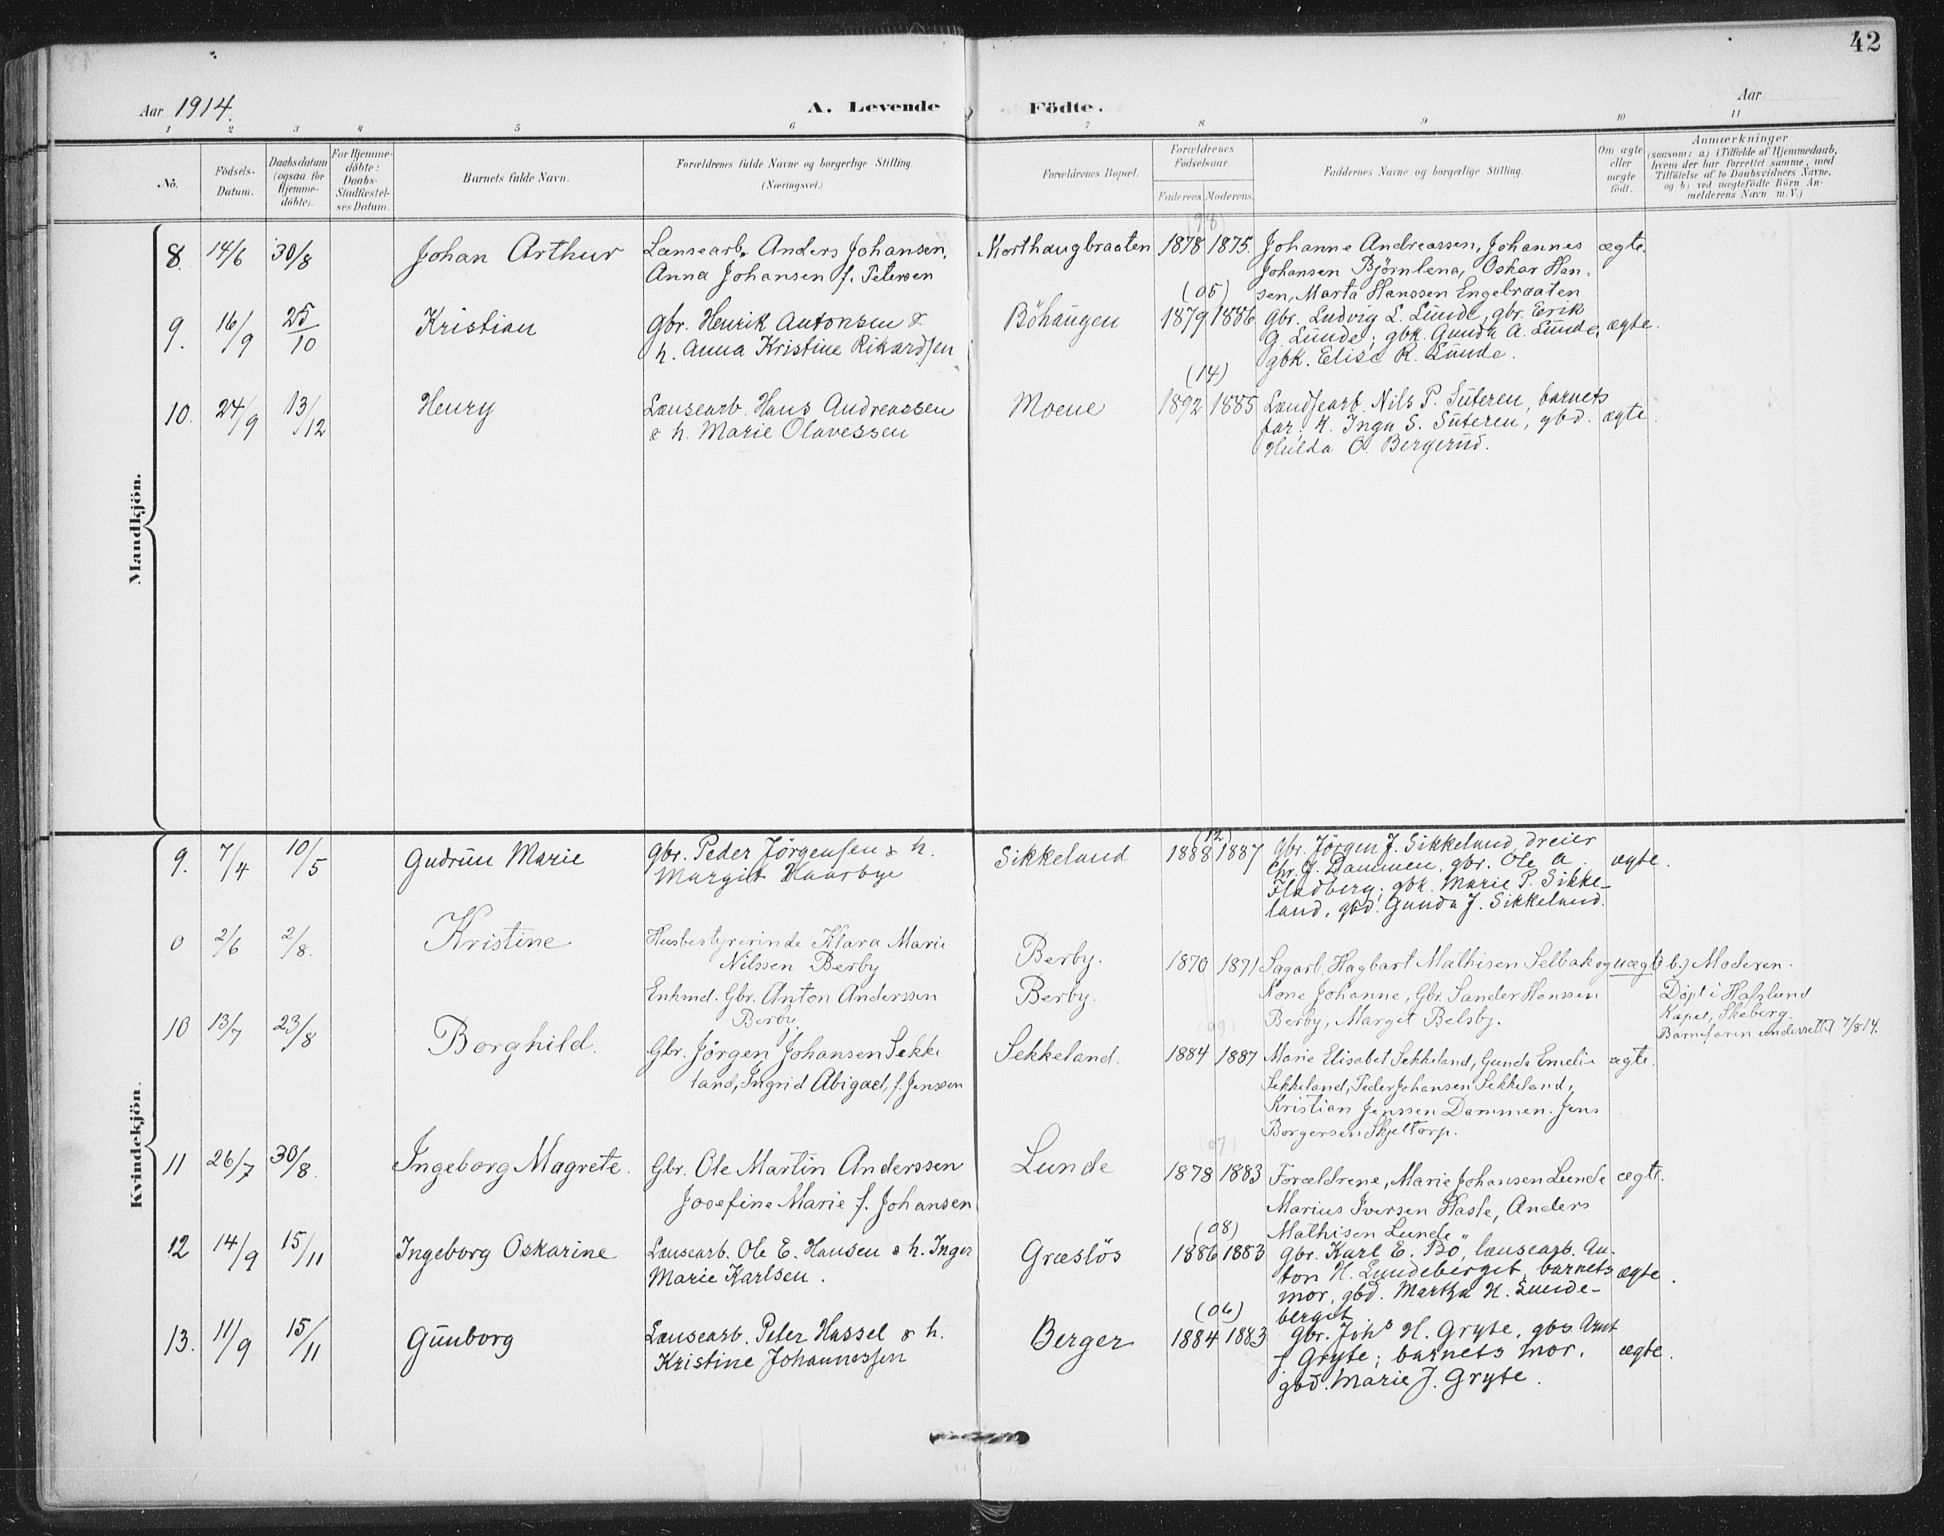 42
Aar 1914. A. Levende Födte. Aar
1 2 3 4 5 6 7 8 9 10 11
No.
Födsels-
Datum.
Daabsdatum
(ogsaa for
Hjemme-
döbte).
For Hjemme-
döbte:
Daabs-
Stadfæstel-
ses Datum.
Barnets fulde Navn.
Forældrenes fulde Navne og borgerlige Stilling
(Næringsvei.)
Forældrenes Bopæl.
Forældrenes
Födselsaar.
Faderens. Moderens.
Faddernes Navne og borgerlige Stilling.
Om ægte
eller
uægte
födt.
Anmærkninger
(saasom: a) i Tilfælde af Hjemmedaab,
hvem der har forrettet samme, med
Tilföielse af to Daabsvidners Navne,
og b) ved uægtefödte Börn An-
melderens Navn m.V.)
Mandkjön.
8. 14/6 30/8 Johan Arthur
Lænsearb. Anders Johansen,
Anna Johansen f. Petersen
Korthaugbraaten
(98)
1878 1875.
Johanne Andreassen, Johannes
Johansen Bjørnlena, Oskar Han-
sen, Marta Hanssen Engebraaten
ægte.
9. 16/9 25/10 Kristian
gbr. Henrik Antonsen &
h. Anna Kristine Rikardsen
Böhaugen
(05)
1879 1886
gbr. Ludvig L. Lunde, gbr. Erik
G. Lunde; gbk. Gunda A. Lunde,
gbk. Elise R. Lunde.
ægte.
10. 24/9 13/12 Henry
Lænsearb. Hans Andreassen
& h. Marie Olavessen
Moene
(14)
1892 1885
Lændsearb. Nils P. Suteren, barnets
far; k. Inga S. Suteren, gbd.
Hulda O. Bergerud.
ægte.
Kvindekjön.
9. 7/4 10/5 Gudrun Marie
gbr. Peder Jörgensen & h.
Margit Haarbye
Sikkeland
(12)
1888 1887
gbr. Jörgen J. Sikkeland, dreier
Chr. J. Dammen, gbr. Ole A.
Fladberg; gbk. Marie P. Sikke-
land, gbd. Gunda J. Sikkeland.
ægte.
0 2/6 2/8. Kristine
Husbestyrerinde Klara Marie
Nilssen Berby
Enkmd. Gbr. Anton Anderssen
Berby
Berby.
Berby.
1870 1871
Sagarb. Hagbart Mathisen Selbak og
Kone Johanne, Gbr. Sander Hanssen
Berby, Margit Belsby.
uægte
b.) Moderen.
Døpt i Hafslund
Kapel, Skeberg.
Barnefaren underrettet 7/8 14.
10 13/7 23/8 Borghild.
Gbr. Jörgen Johansen Sekke
land, Ingrid Abigael, f. Jenssen
Sekkeland.
(09)
1884 1887
Marie Elisabet Sekkeland, Gunda Emelie
Sekkeland, Peder Johansen Sekkeland,
Kristian Jenssen Dammen. Jens
Borgersen Skjeltorp.
ægte.
11 26/7 30/8. Ingeborg Magrete.
Gbr. Ole Martin Anderssen
Josefine Marie f. Johansen
Lunde
(07)
1878 1883
Forældrene, Marie Johansen Lunde
Marius Iversen Hasle, Anders
Mathisen Lunde
ægte.
12 14/9 15/11 Ingeborg Oskarine
Lænsearb. Ole E. Hansen & h. Inger
Marie Karlsen.
Græslös
(08)
1886 1883
gbr. Karl E. Bö, lænsearb. An-
ton H. Lundeberget, barnets
mor, gbd. Martha H. Lunde-
berget
ægte.
13. 11/9 15/11 Gunborg
Lænsearb. Peter Hassel & h.
Kristine Johannessen
Berger
(06)
1884 1883
gbr. Johs H. Gryte, gbs Arnt
J. Gryte; barnets mor,
gbd. Marie J. Gryte.
ægte.